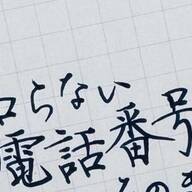 らない
電話番号